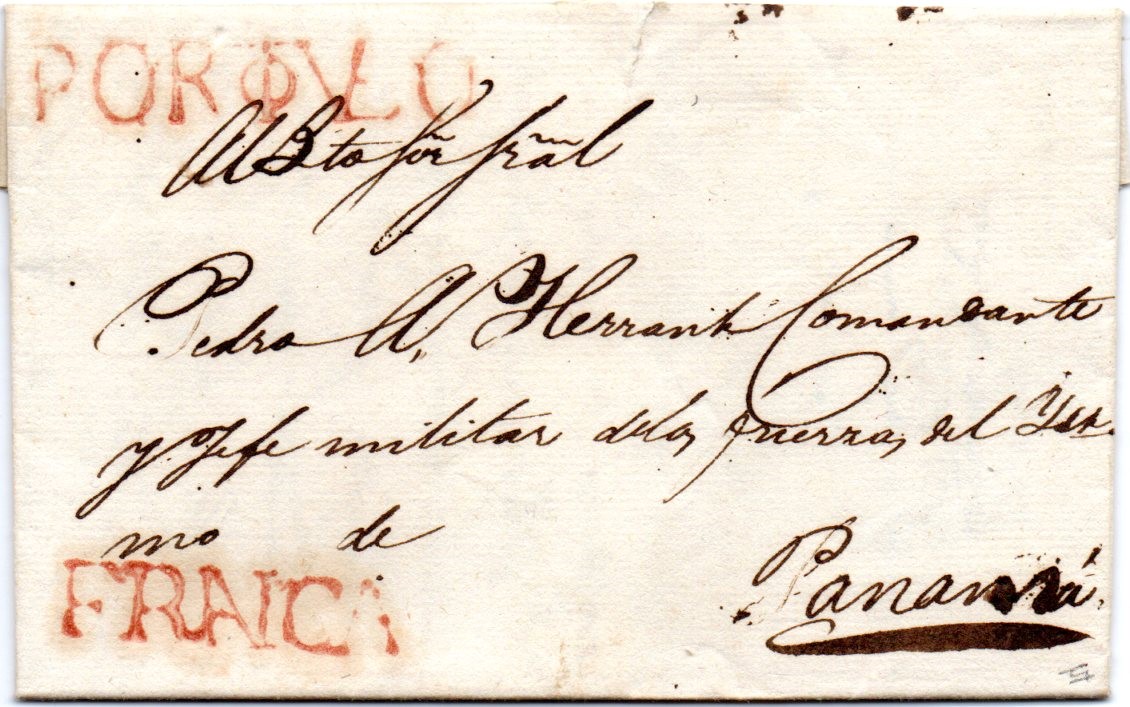 PORTOVELO
Al Bto Sor Gral
Pedro A. Herran Comandante
y Jefe militar delas fuerzas del Yst
mo de
Panamá
FRANCA